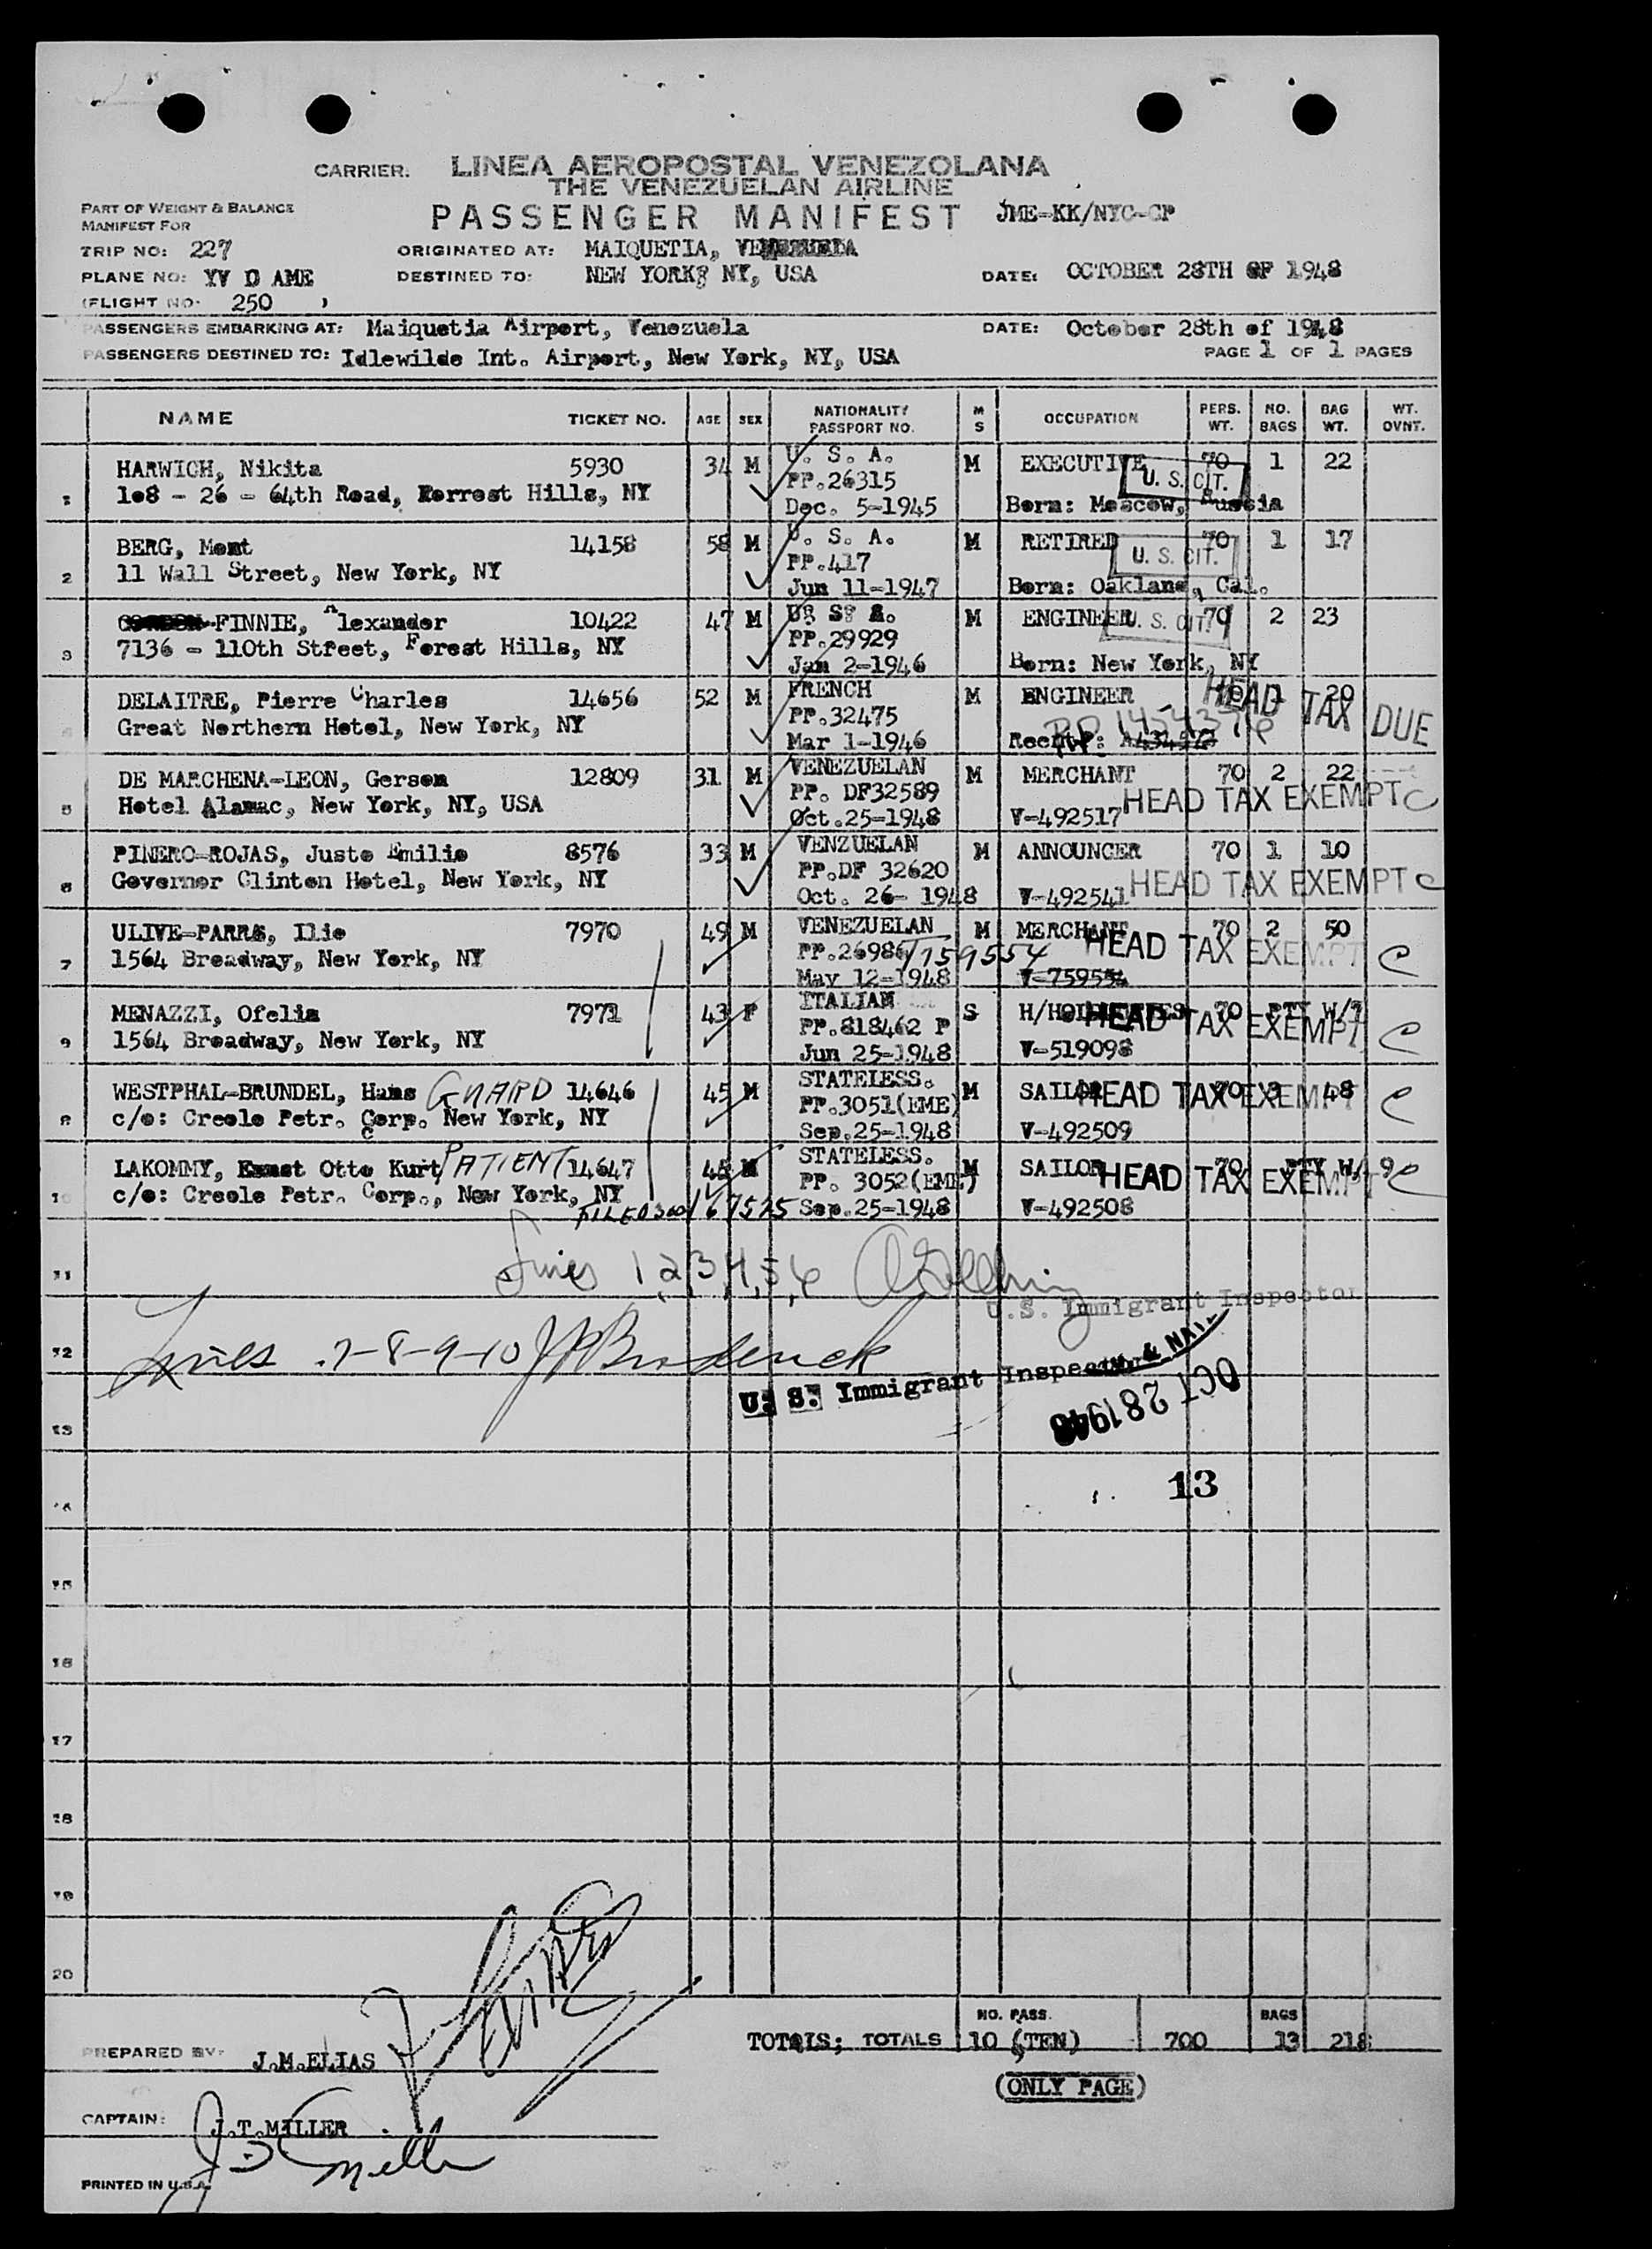 CARRIER. LINEA AEROPOSTAL VENEZOLANA
THE VENEZUELAN AIRLINE
PART OF WEIGHT & BALANCE
MANIFEST FOR
PASSENGER MANIFEST JME-KK/NYC-CP
TRIP NO: 227 ORIGINATED AT: MAIQUETIA, VENEZUELA
PLANE NO: YV D AME DESTINED TO: NEW YORK, NY, USA DATE: OCTOBER 28TH OF 1948
(FLIGHT NO. 250 )
PASSENGERS EMBARKING AT: Maiquetia Airport, Venezuela DATE: October 28th of 1948
PASSENGERS DESTINED TO: Idlewilde Int. Airport, New York, NY, USA PAGE 1 OF 1 PAGES
NAME TICKET NO. AGE SEX NATIONALITY PASSPORT NO. M S OCCUPATION PERS. WT. NO. BAGS BAG WT. WT. OVNT.
HARWICH, Nikita 5930 34 M U. S. A. M EXECUTIVE 70 1 22
1 108 - 26 - 64th Road, Forrest Hills, NY PP.26315 U. S. CIT.
Dec. 5-1945 Born: Moscow, Russia
BERG, Mont 14158 58 M U. S. A. M RETIRED 70 1 17
2 11 Wall Street, New York, NY PP.417 U. S. CIT.
Jun 11-1947 Born: Oakland, Cal.
FINNIE, Alexander 10422 47 M U. S. A. M ENGINEER U. S. CIT. 70 2 23
3 7136 - 110th Street, Forest Hills, NY PP.29929
Jan 2-1946 Born: New York, NY
DELAITRE, Pierre Charles 14656 52 M FRENCH M ENGINEER 70 1 20 HEAD TAX DUE
Great Northern Hotel, New York, NY PP.32475
Mar 1-1946
DE MARCHENA-LEON, Gerson 12809 31 M VENEZUELAN M MERCHANT 70 2 22
5 Hotel Alamac, New York, NY, USA PP. DF32589 HEAD TAX EXEMPT C
Oct.25-1948 V-492517
PINERO-ROJAS, Justo Emilio 8576 33 M VENZUELAN M ANNOUNCER 70 1 10
6 Governor Clinton Hotel, New York, NY PP.DF 32620 HEAD TAX EXEMPT C
Oct. 26- 1948 V-492541
ULIVE-PARRA, Ilio 7970 49 M VENEZUELAN M MERCHANT 70 2 50
7 1564 Broadway, New York, NY PP.26986 T759554 HEAD TAX EXEMPT C
May 12-1948 V-759554
MENAZZI, Ofelia 7971 43 F ITALIAN S 70 PTY W/7
9 1564 Broadway, New York, NY PP.818462 P HEAD TAX EXEMPT C
Jun 25-1948 V-519098
WESTPHAL-BRUNDEL, Hans GUARD 14646 45 M STATELESS. M SAILOR 70 3 48 HEAD TAX EXEMPT C
8 c/o: Creole Petr. Corp. New York, NY PP.3051(EME)
Sep.25-1948 V-492509
LAKOMMY, Ernst Otto Kurt PATIENT 14647 45 M STATELESS. M SAILOR 70 PTY W/ 9 HEAD TAX EXEMPT C
10 c/o: Creole Petr. Corp., New York, NY PP. 3052(EME)
Sep.25-1948 V-492508
11 Lines 1,2,3,4,5,6
U.S. Immigrant Inspector
12 Lines 7-8-9-10
U. S. Immigrant Inspector
OCT 28 1948
13
14 13
15
16
17
18
19
20
NO. PASS. BAGS
TOTALS; TOTALS 10 (TEN) 700 13 218
PREPARED BY: J.M.ELIAS
(ONLY PAGE)
CAPTAIN: J.T.MILLER
PRINTED IN U.S.A.